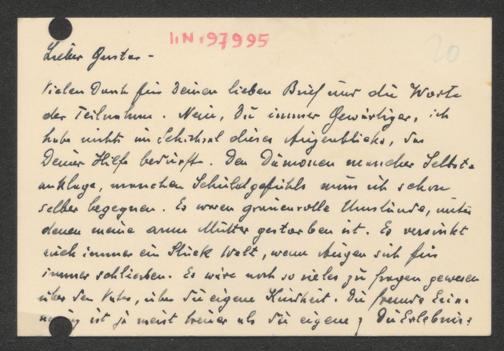 I.N. 197995
20
Lieber Gustav –
Vielen Dank für Deinen lieben Brief und die Worte
der Teilnahme. Nein, Du immer Gewärtiger, ich
habe nichts im Schicksal dieses Augenblicks, das
Deiner Hilfe bedürft. Den Dämonen mancher Selbst-
anklage, manchen Schuldgefühls muss ich schon
selber begegnen. Es waren grauenvolle Umstände, unter
denen meine arme Mutter gestorben ist. Es versinkt
auch immer ein Stück Welt, wenn Augen sich für
immer schliessen. Es wäre noch so vieles zu fragen gewesen
über den Vater, über die eigene Kindheit. Die fremde Erin-
nerung ist ja meist treuer als die eigene; Die Erlebnis=